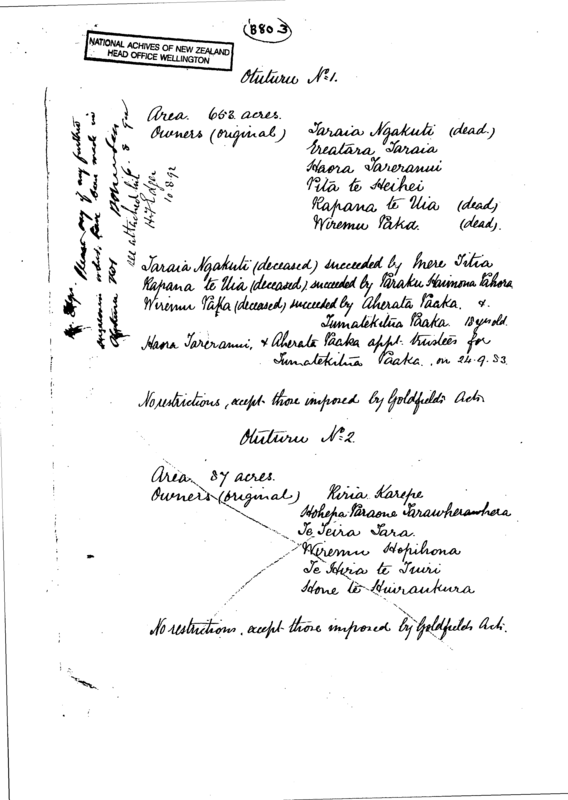 B80 3
NATIONAL ACHIVES OF NEW ZEALAND
HEAD OFFICE WELLINGTON
Otuturu No 1.
Area. 658 acres.
Owners (original) Taraia Ngakuti (dead.)
Ereatara Taraia
Haora Tareranui
Pita te Heihei
Rapana te Uia (dead)
Wiremu Paka. (dead).
Taraia Ngakuti (deceased) succeeded by Mere Titia
Rapana te Uia (deceased) succeeded by Paraku Haimona Pahora
Wiremu Paka (deceased) succeeded by Aherata Paaka. &
Tumatekitua Paaka. 18 yrs old.
Haora Tareranui, & Aherata Paaka appt. trustees for
Tumatekitua Paaka. on 24.9.83.
No restrictions, except those imposed by Goldfields Acts
Otuturu No 2.
Area. 87 acres.
Owners (original) Kiria Karepe
Hohepa Paraone Tarawherawhera
Te Teira Tara.
Wiremu Hopihona
Te Hira te Tuiri
Hone te Huiraukura
No restrictions, except those imposed by Goldfields Acts.
Please say if any further
succession orders have been made in
see attached
10.8.92